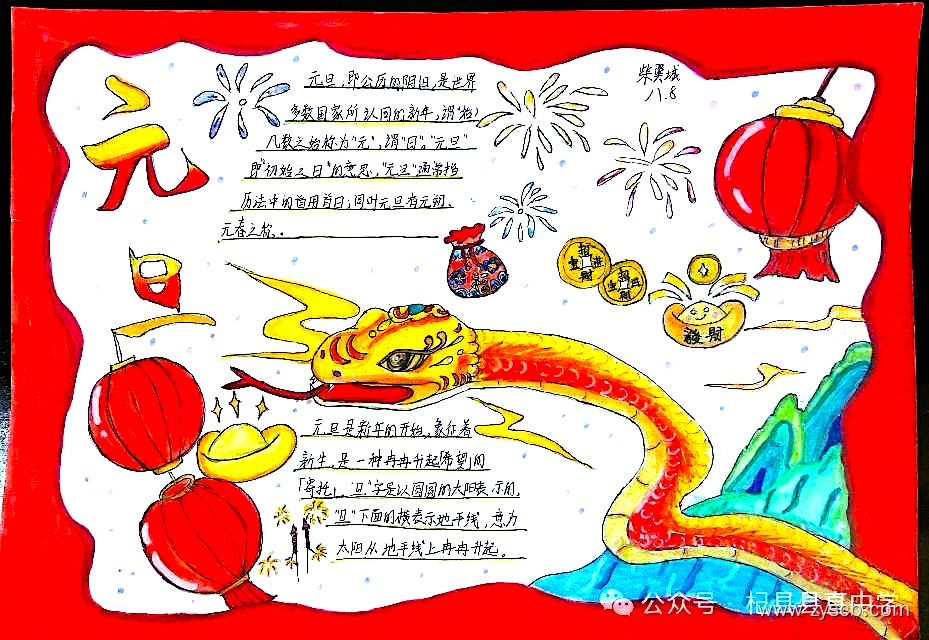 元旦
柴翼城
八.8
元旦,即公历的1月1日,是世界
多数国家所认同的新年,谓"指
凡数之始称为"元",谓"日","元旦"
即"初始之日"的意思,"元旦"通常指
历法中的首用首日;同叶元旦有元朔、
元春之称。
招财进宝
招财进宝
发財
元旦是新年的开始,象征着
新生,是一种冉冉升起「希望」的
「寄托」,"旦"字是以圆圆的太阳表示的,
"旦"下面的横表示地平线,意为
太阳从地平线上冉冉升起。
公众号
www.zyscb.com